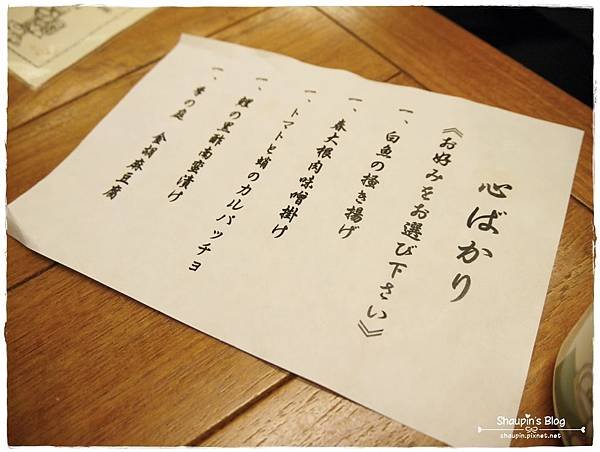 心ばかり
《お好みをお選び下さい》
一、白魚の掻き揚げ
一、春大根肉味噌掛け
一、トマトと蛸のカルパッチョ
一、鯉の黒酢南蛮漬け
一、季の庭 金胡麻豆腐
Shaupin's Blog
shaupin.pixnet.net